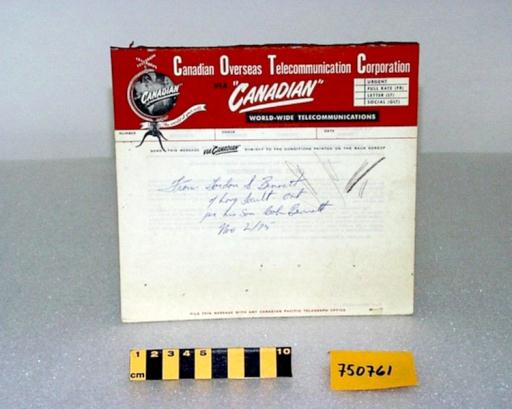 Canadian Overseas Telecommunication Corporation
VIA "CANADIAN"
WORLD-WIDE TELECOMMUNICATIONS
URGENT
FULL RATE (FR)
LETTER (LT)
SOCIAL (GLT)
CANADIAN
NUMBER CHECK DATE
SEND THIS MESSAGE VIA CANADIAN SUBJECT TO THE CONDITIONS PRINTED ON THE BACK HEREOF
From Gordon S Bennett
of Long Sault Ont
per his son Bob Bennett
Nov 2/75
FILE THIS MESSAGE WITH ANY CANADIAN PACIFIC TELEGRAPH OFFICE
1 2 3 4 5 10
cm
750761